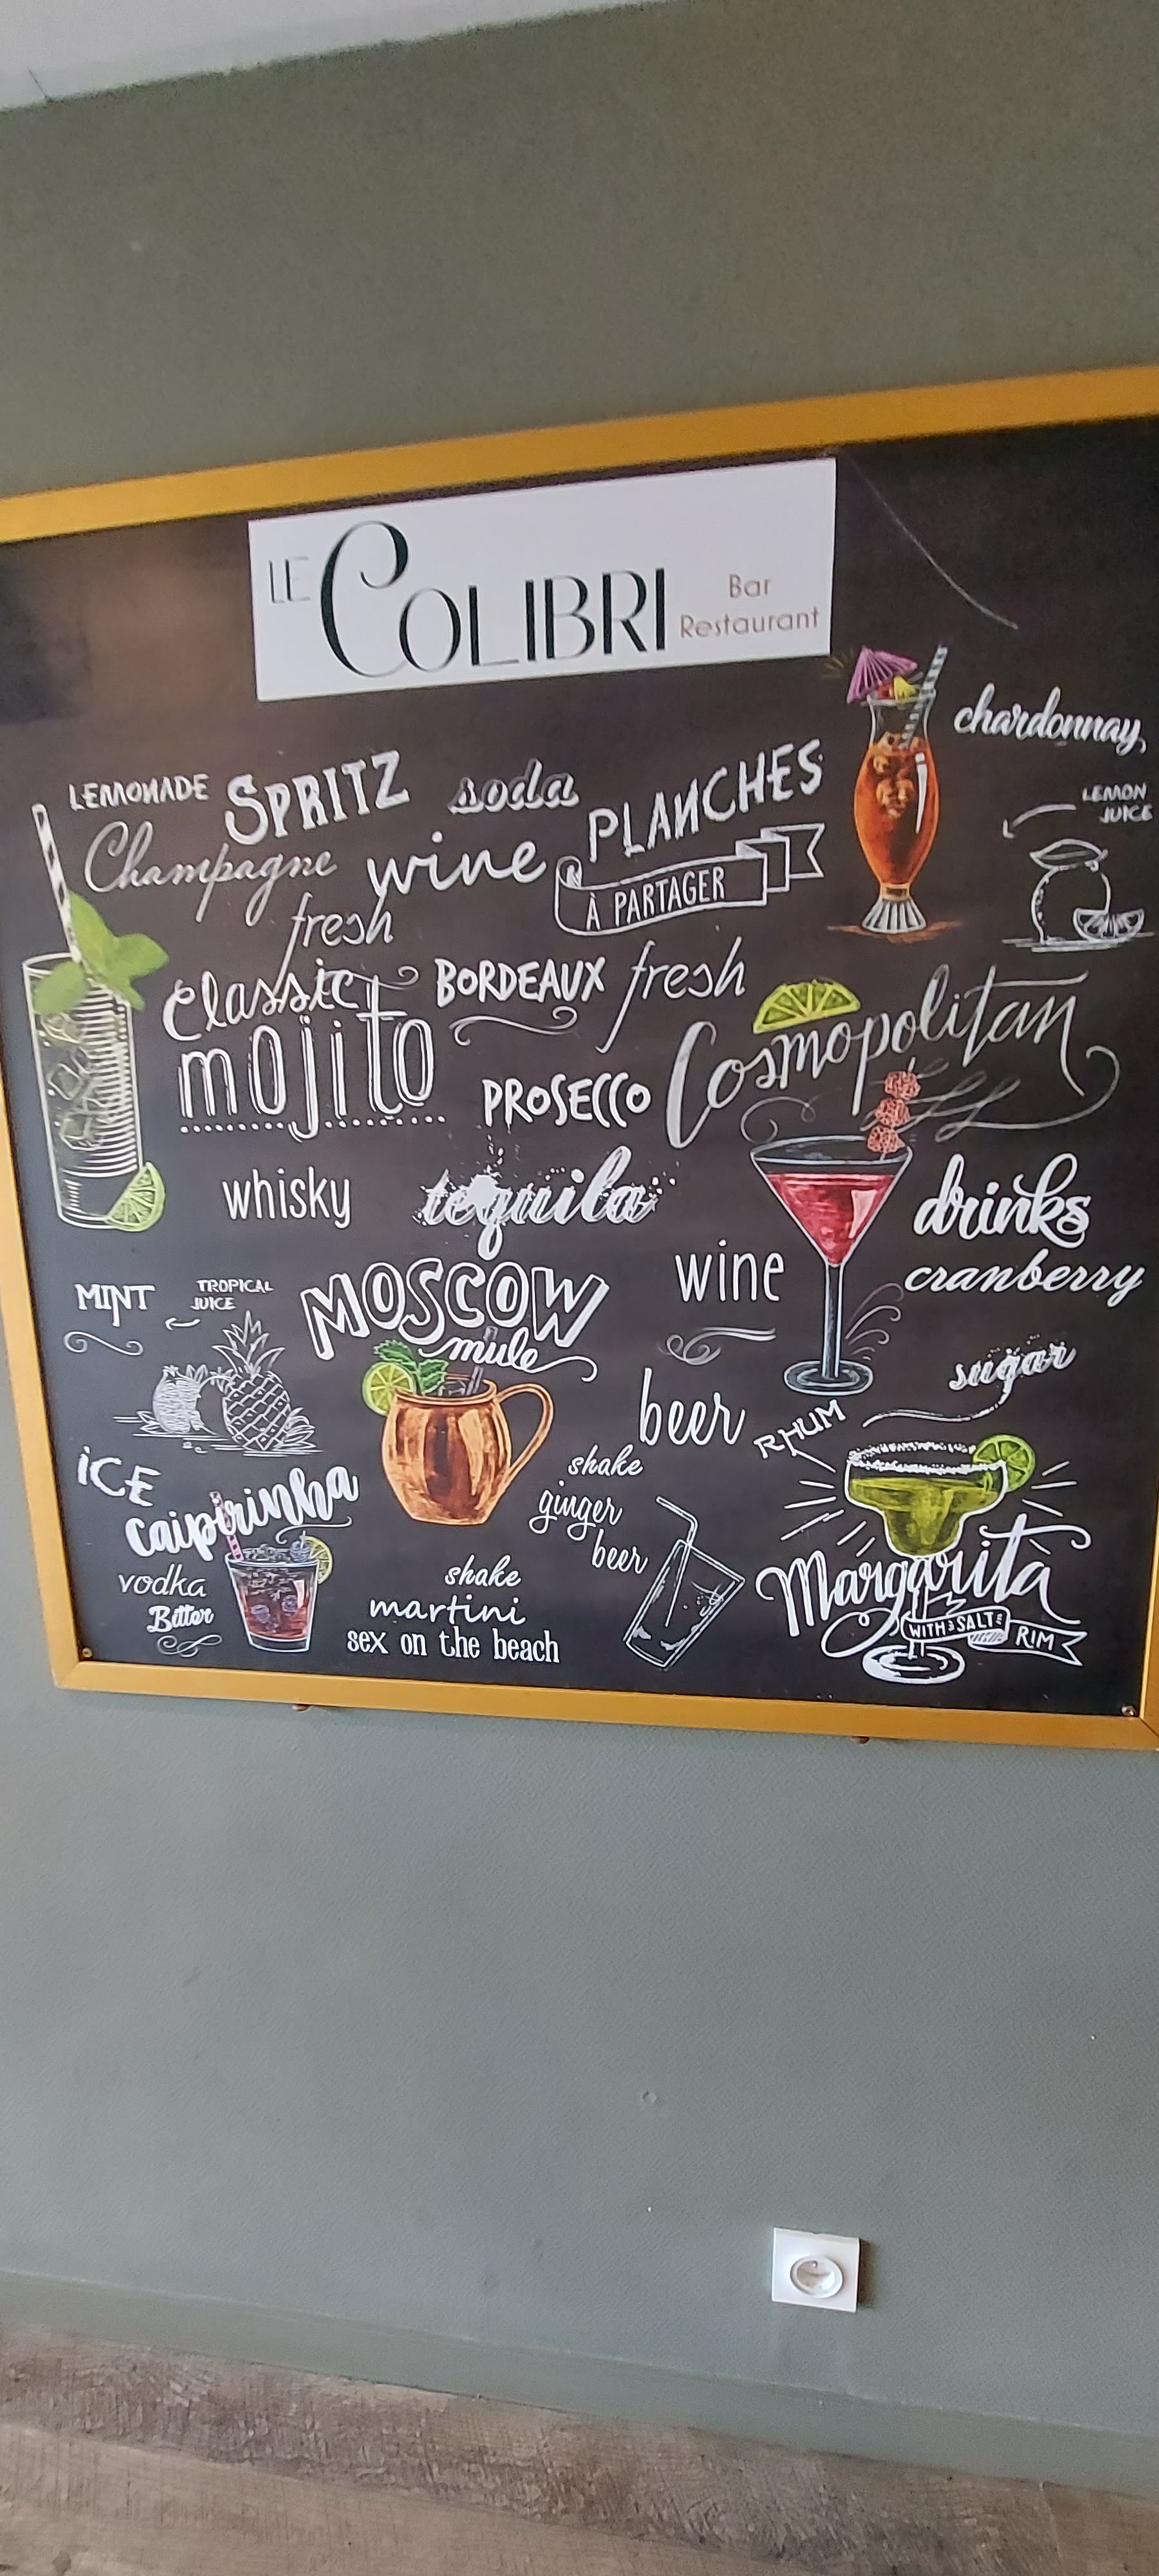 LE COLIBRI Bar
Restaurant
chardonnay,
LEMONADE SPRITZ soda PLANCHES
LEMON
JUICE
Champagne wine À PARTAGER
fresh
classic BORDEAUX fresh
mojito PROSECCO Cosmopolitan
whisky tequila drinks
wine cranberry
MINT TROPICAL
JUICE
MOSCOW
mule
sugar
beer RHUM
ICE shake
Caipirinha ginger
beer
vodka shake Margarita
Bitter martini WITH SALT
RIM
sex on the beach